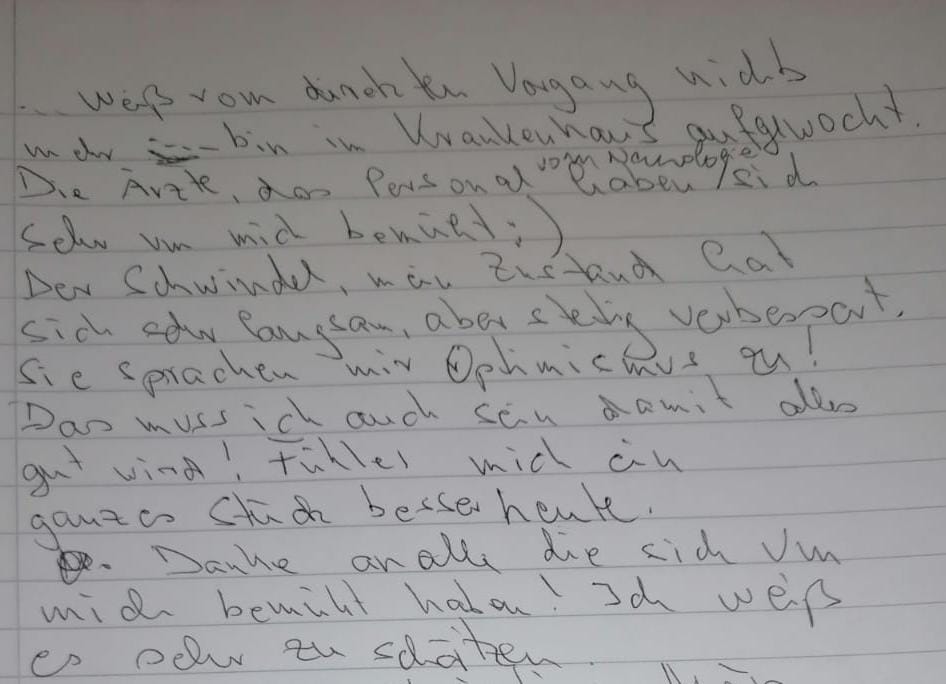 ... weiß vom direkten Vorgang nichts
mehr bin im Krankenhaus aufgewacht.
Die Ärzte, das Personal vom Neurologie haben sich
sehr um mich bemüht :)
Der Schwindel, mein Zustand hat
sich sehr langsam, aber stetig verbessert.
Sie sprachen mir Optimismus zu!
Das muss ich auch sein damit alles
gut wird! Fühle mich ein
ganzes Stück besser heute.
Danke an alle die sich um
mich bemüht haben! Ich weiß
es sehr zu schätzen.